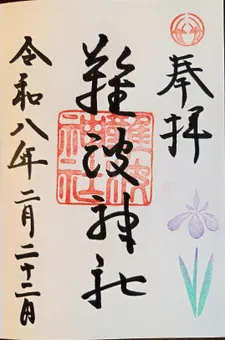 奉拝
難波神社
難波神社
令和八年二月二十二日